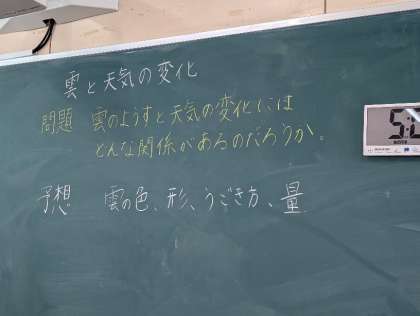 雲と天気の変化
問題 雲のようすと天気の変化には
どんな関係があるのだろうか。
予想 雲の色、形、うごき方、量